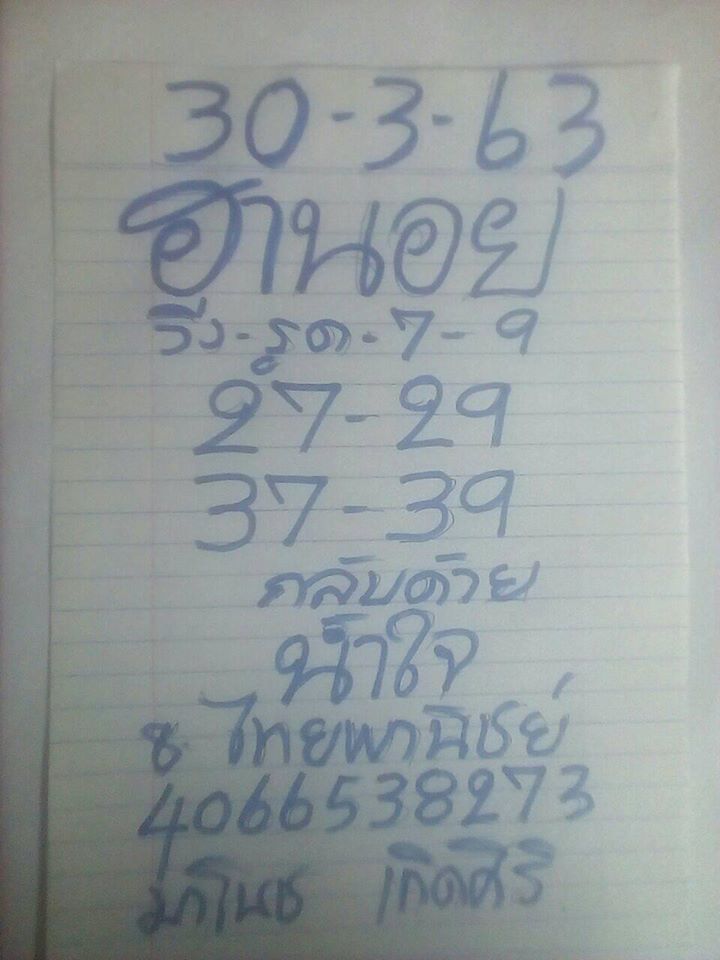 30-3-63
ฮานอย
วิ่ง-รูด-7-9
27-29
37-39
กลับด้วย
น้ำใจ
ธ. ไทยพานิชย์
4066538273
มาโนช เกิดศิริ